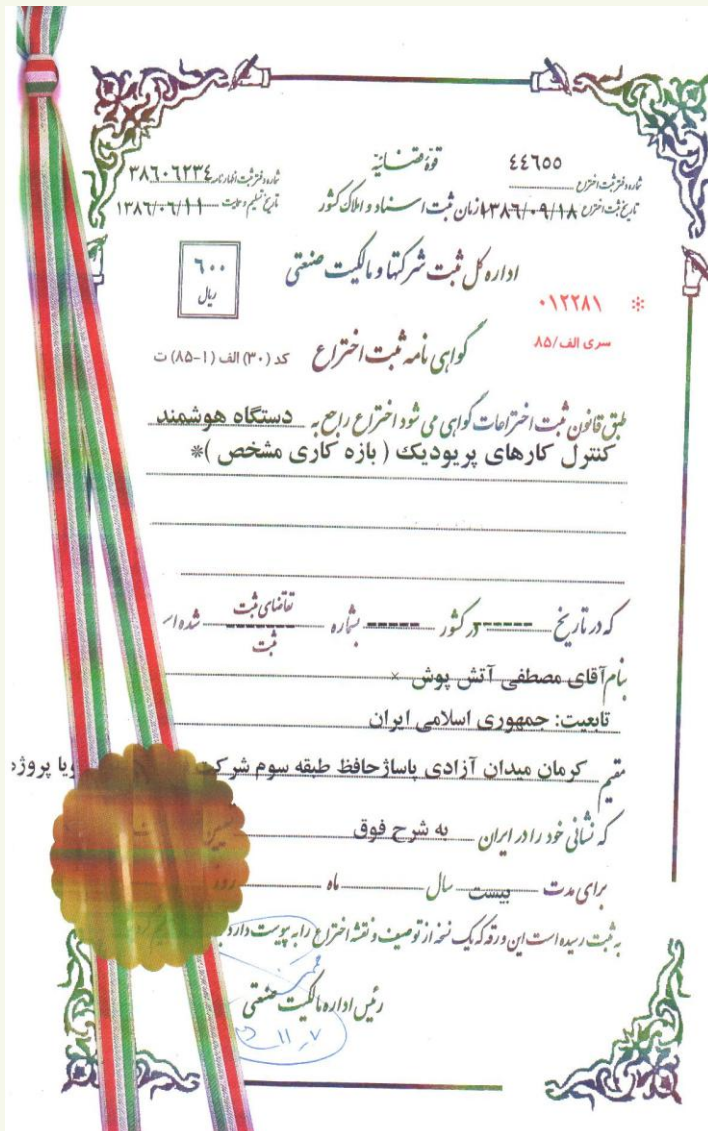 قوه قضائیه
٤٤٦٥٥
شماره دفتر ثبت اختراع
شماره دفتر ثبت اظهارنامه ٣٨٦٠٦٢٣٤
تاریخ ثبت اختراع ١٣٨٦/٠٩/١٨
سازمان ثبت اسناد و املاک کشور
تاریخ تسلیم و حمایت ١٣٨٦/٠٦/١١
اداره کل ثبت شرکتها و مالکیت صنعتی
٦٠٠
ریال
* ٠١٢٢٨١
سری الف/٨٥
گواهی نامه ثبت اختراع
کد (٣٠) الف (١-٨٥) ت
طبق قانون ثبت اختراعات گواهی می شود اختراع راجع به دستگاه هوشمند
کنترل کارهای پریودیک ( بازه کاری مشخص )*
که در تاریخ ------ در کشور ----- بشماره ------ تقاضای ثبت
ثبت
بنام آقای مصطفی آتش پوش ×
تابعیت: جمهوری اسلامی ایران
مقیم کرمان میدان آزادی پاساژحافظ طبقه سوم شرکت پروژه
که نشانی خود را در ایران به شرح فوق
برای مدت بیست سال ماه روز
به ثبت رسیده است این ورقه که یک نسخه از توصیف و نقشه اختراع را به پیوست دارد
رئیس اداره مالکیت صنعتی